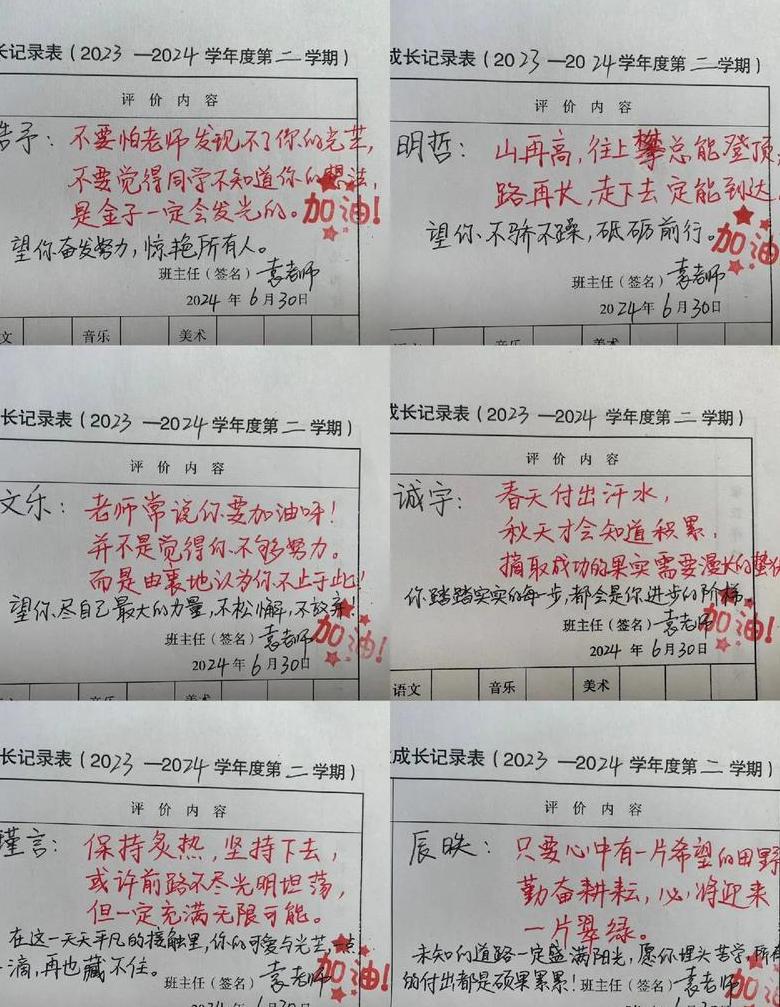 长记录表（2023—2024学年度第二学期）
评价内容
浩予：不要怕老师发现不了你的光芒，
不要觉得同学不知道你的想法，
是金子一定会发光的。
加油！
望你奋发努力，惊艳所有人。
班主任（签名）袁老师
2024年6月30日
文
音乐
美术
成长记录表（2023—2024学年度第二学期）
评价内容
明哲：山再高，往上攀总能登顶；
路再长，走下去定能到达。
望你不骄不躁，砥砺前行。
加油
班主任（签名）袁老师
2024年6月30日
音乐
美术
长记录表（2023—2024学年度第二学期）
评价内容
文乐：老师常说你要加油呀！
并不是觉得你不够努力。
而是由衷地认为你不止于此！
望你尽自己最大的力量，不松懈，不放弃！
加油！
班主任（签名）袁老师
2024年6月30日
音乐
美术
成长记录表（2023—2024学年度第二学期）
评价内容
诚宇：春天付出汗水，
秋天才会知道积累，
摘取成功的果实需要漫长的蛰伏
你踏踏实实的每一步，都会是你进步的阶梯。
加油！
班主任（签名）袁老师
2024年6月30日
语文
音乐
美术
长记录表（2023—2024学年度第二学期）
评价内容
瑾言：保持炙热，坚持下去，
或许前路不尽光明坦荡，
但一定充满无限可能。
在这一天天平凡的接触里，你的可爱与光芒，一点
一滴，再也藏不住。
班主任（签名）袁老师
加油！
2024年6月30日
成长记录表（2023—2024学年度第二学期）
评价内容
辰昳：只要心中有一片希望的田野
勤奋耕耘，必将迎来
一片翠绿。
未知的道路一定盛满阳光，愿你埋头苦学，所有
的付出都是硕果累累！
班主任（签名）袁老师
加油